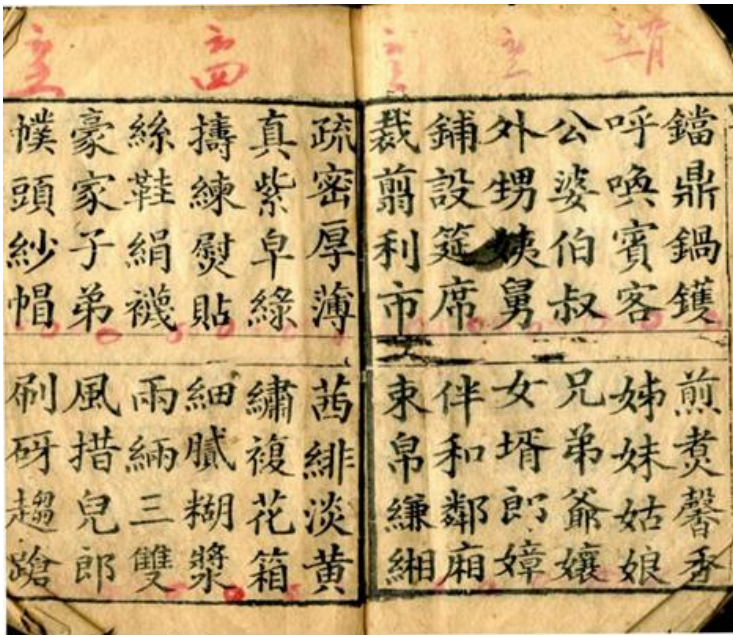 鐺鼎鍋鑊 煎煑馨香
呼喚賓客 姊妹姑娘
公婆伯叔 兄弟爺孃
外甥姨舅 女壻郎嫜
鋪設筵席 伴和鄰廂
裁翦利市 束帛縑緗
疏密厚薄 茜緋淡黄
真紫皁綠 繡複花箱
擣練熨貼 細膩糊漿
絲鞋絹襪 兩緉三雙
豪家子弟 風措兒郎
幞頭紗帽 刷砑趨蹌